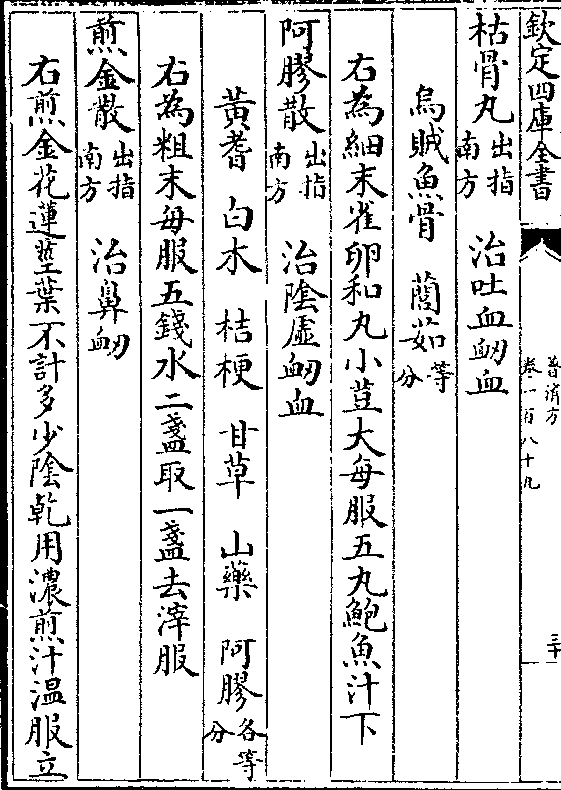 欽定四庫全書
普濟方
卷一百八十九
三十
枯骨丸出指南方 治吐血衂血
烏賊魚骨 藺茹等分
右為細末雀卵和丸小荳大每服五丸鮑魚汁下
阿膠散出指南方 治陰虛衂血
黃耆 白朮 桔梗 甘草 山藥 阿膠各等分
右為粗末每服五錢水二盞取一盞去滓服
煎金散出指南方 治鼻衂
右煎金花蓮莖葉不計多少陰乾用濃煎汁温服立